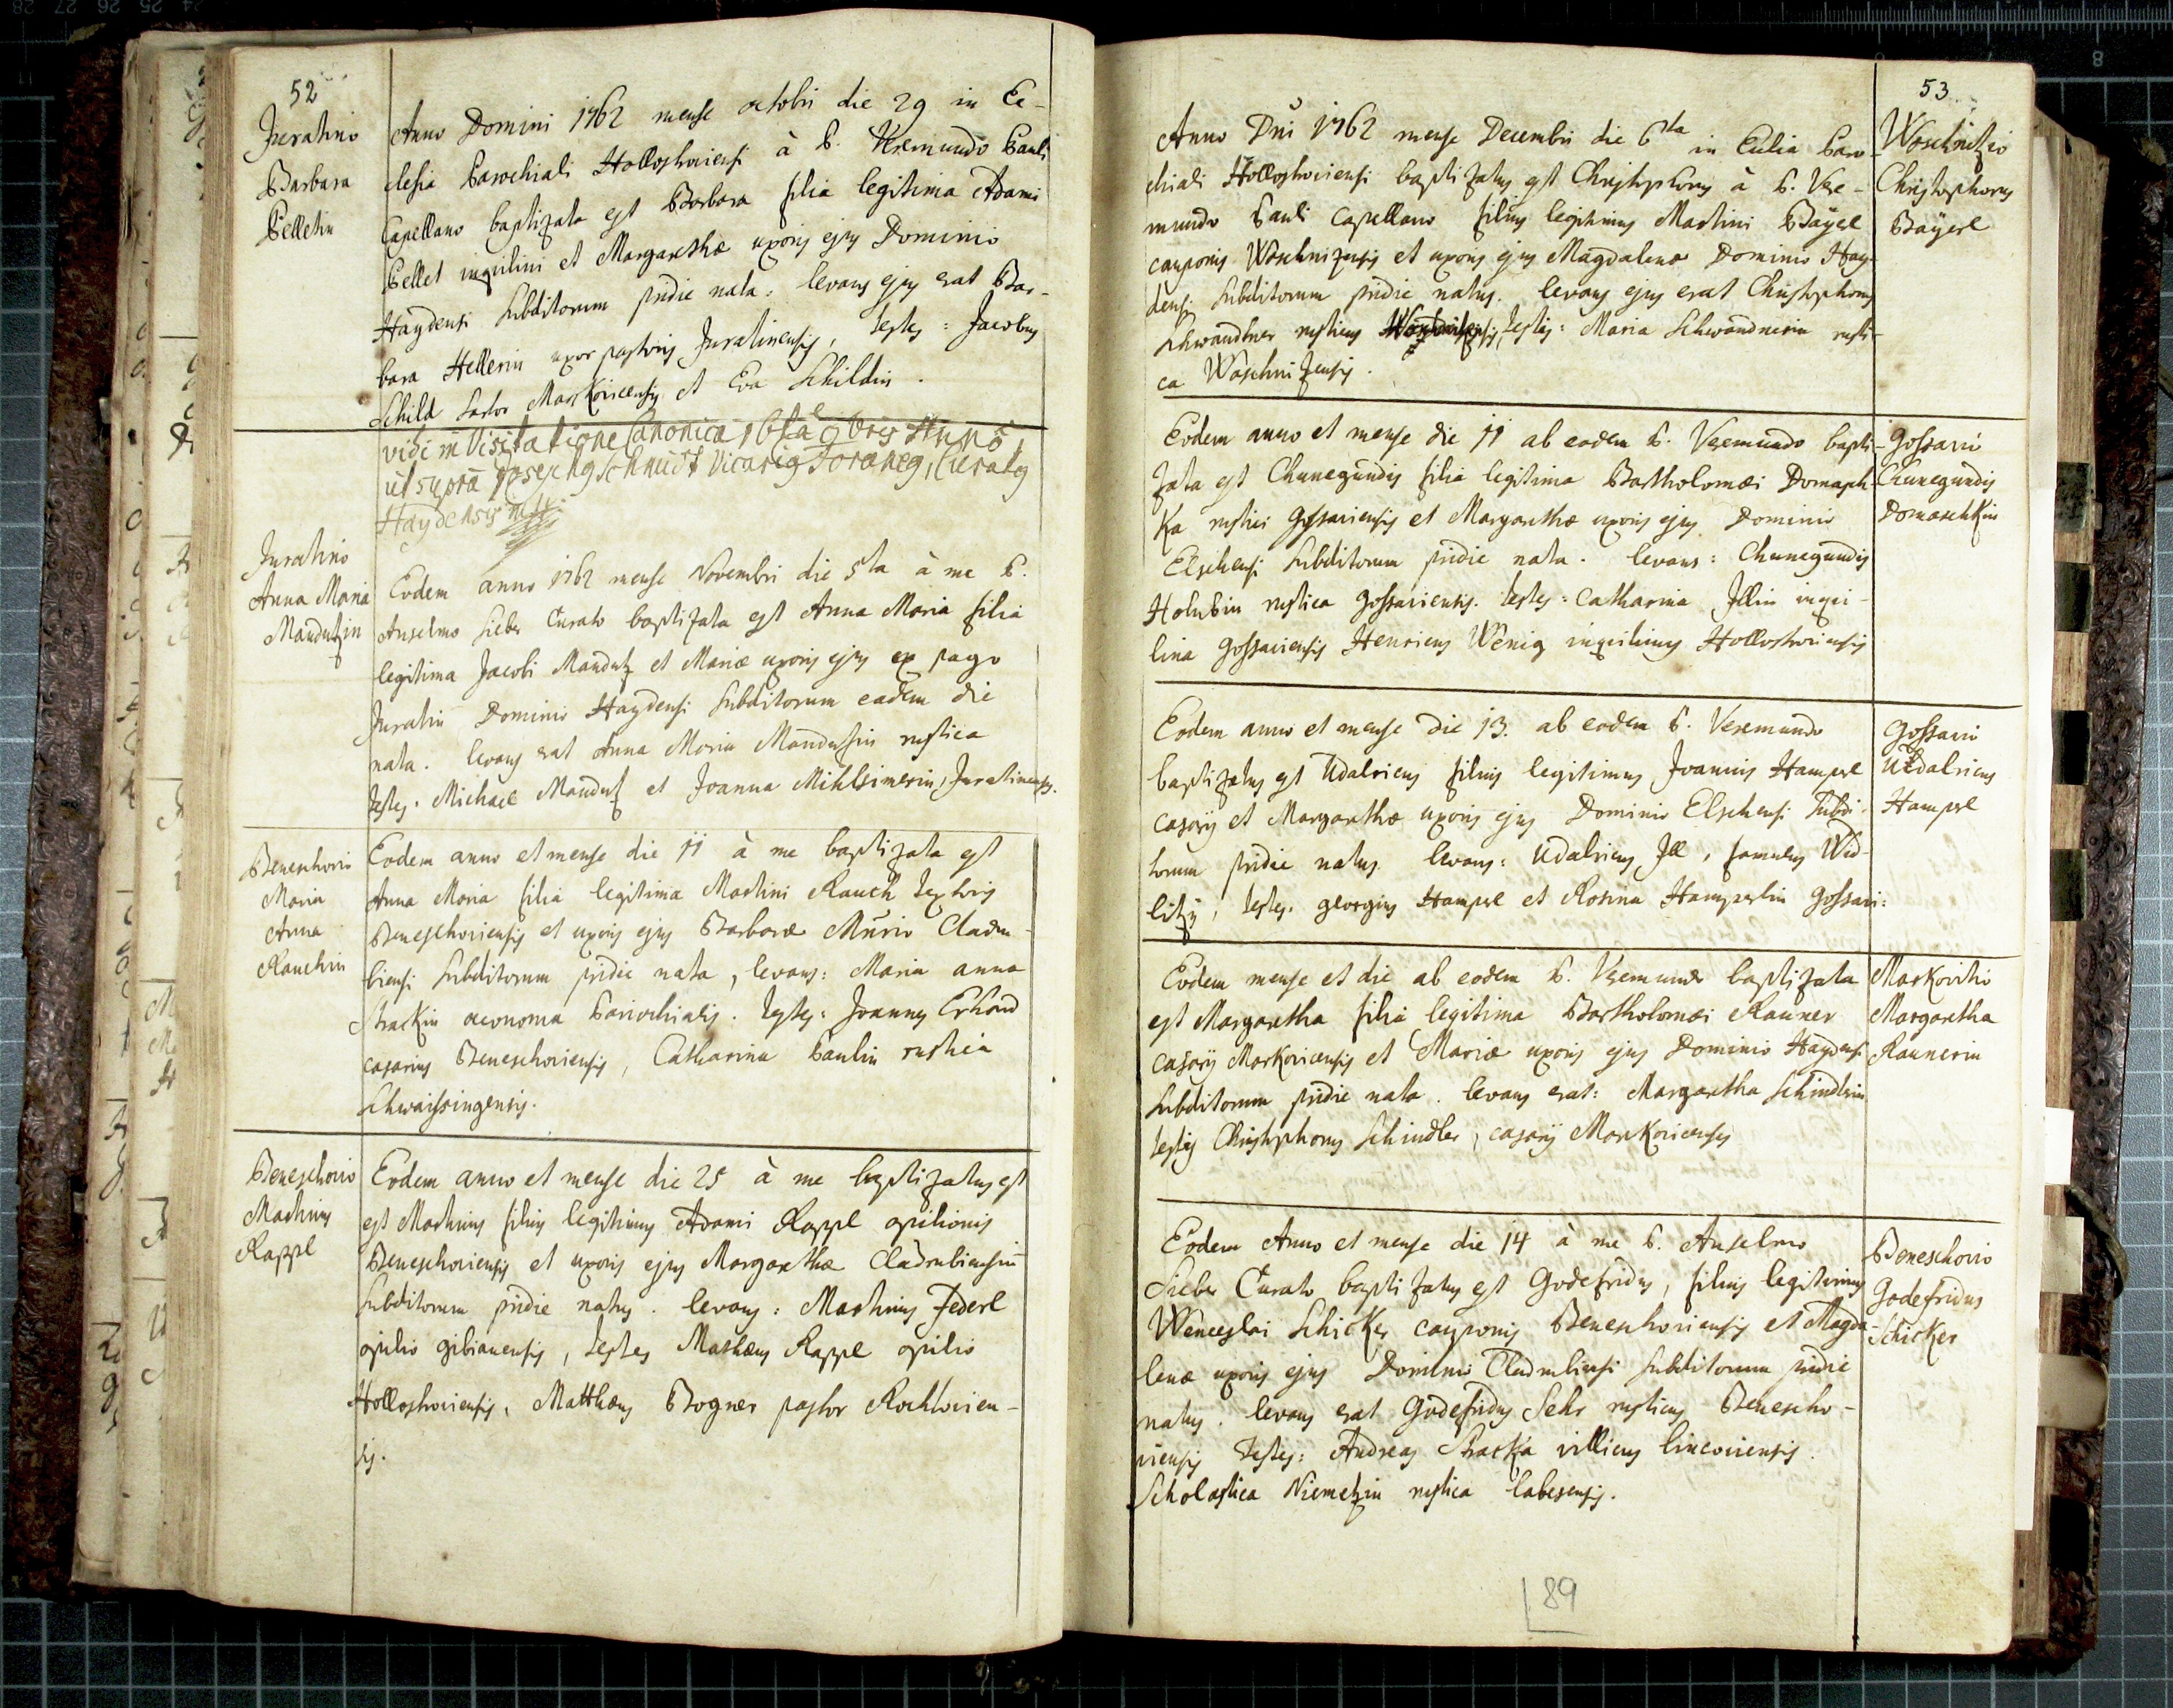 52
Juratino
Barbara
Pelletin
Anno Domini 1762 mense octobri die 29 in Ec-
clesia Parochiali Holleschoviensi à P. Veremundo Pauli
Capellano baptizata est Barbara filia legitima Adami
Pellet inquilini et Margarethæ uxoris ejus Dominio
Haydensi Subditorum pridie nata: levans ejus erat Bar-
bara Hellerin uxor pastoris Juratinensis, testes: Jacobus
Schild sartor Markovicensis et Eva Schildin.
vidi in Visitatione Canonica 16ta 9bris Anno
ut supra Josephus Schmidt Vicarius Foraneus, Curatus
Haydensis
Juratino
Anna Maria
Mandutzin
Eodem anno 1762 mense Novembri die 5ta à me P.
Anselmo Lieber Curato baptizata est Anna Maria filia
legitima Jacobi Mandutz et Mariæ uxoris ejus ex pago
Juratin Dominio Haydensi Subditorum eadem die
nata. levans erat Anna Maria Mandutzin rustica
testes. Michael Mandutz et Joanna Mihlsimerin, Juratinenses.
Beneschovio
Maria
Anna
Rauchin
Eodem anno et mense die 11 à me baptizata est
Anna Maria filia legitima Martini Rauch textoris
Beneschoviensis et uxoris ejus Barbaræ Cladru-
biensi Subditorum pridie nata, levans: Maria anna
Strackin oeconoma Parochialis. testes: Joannes Erhard
casarius Beneschoviensis, Catharina Paulin rustica
Schwaissingensis.
Beneschovio
Martinus
Rappl
Eodem anno et mense die 25 à me baptizatus est
est Martinus filius legitimus Adami Rappl opilionis
Beneschoviensis et uxoris ejus Margarethæ Cladrubiensium
Subditorum pridie natus. levans: Martinus Federl
opilio gibianensis, testes Mathæus Rappl opilio
Holloschoviensis, Matthæus Bogner pastor Rochlovien-
sis.
53
Anno Dni 1762 mense Decembri die 6ta in Eclia Paro-
chiali Holloschoviensi baptizatus est Christophorus à P. Vere-
mundo Pauli Capellano filius legitimus Martini Bayerl
cauponis Woschnizensis et uxoris ejus Magdalenæ Dominio Hay-
densi Subditorum pridie natus. levans ejus erat Christophorus
Schwandner rusticus Woschnitzensis, testes: Maria Schwandnerin rusti-
ca Woschnizensis.
Woschnitzio
Christophorus
Bayerl
Eodem anno et mense die 11 ab eodem P. Veremundo bapti-
zata est Chunegundis filia legitima Bartholomæi Domasch-
ka rustici Gossaviensis et Margarethæ uxoris ejus Dominio
Elschensi Subditorum pridie nata. levans: Chunegundis
Holubin rustica Gossaviensis. testes: Catharina Illin inqui-
lina Gossaviensis Henricus Wenig inquilinus Holloschoviensis
Gossavii
Chunegundis
Domaschkin
Eodem anno et mense die 13. ab eodem P. Veremundo
baptizatus est Udalricus filius legitimus Joannis Hamperl
casarij et Margarethæ uxoris ejus Dominio Elschensi Subdi-
torum pridie natus. levans: Udalricus Ill, famulus Wid-
litzy, testes. georgius Hamperl et Rosina Hamperlin Gossavi:
Gossavii
Udalricus
Hamperl
Eodem mense et die ab eodem P. Veremundo baptizata
est Margaretha filia legitima Bartholomæi Rauner
casarij Markovicensis et Mariæ uxoris ejus Dominio Haydensi
Subditorum pridie nata. levans erat: Margaretha Schindlerin
testis Christophorus Schindler, casarij Markovicenses
Markovitio
Margaretha
Raunerin
Eodem Anno et mense die 14 à me P. Anselmo
Lieber Curato baptizatus est Godefridus, filius legitimus
Wenceslai Schicker cauponis Beneschoviensis et Magda-
lenæ uxoris ejus Dominio Cladrubiensi Subditorum pridie
natus. levans erat Godefridus Sehr rusticus Benescho-
viensis testes: Andreas Stracka villicus lincoviensis.
Scholastica Niemetzin rustica labesensis.
Beneschovio
Godefridus
Schicker
89